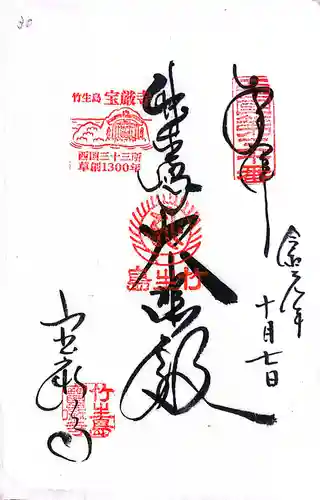 奉拝
令和元年
十月七日
竹生島
大悲殿
宝厳寺
竹生島 宝厳寺
西国三十三所
草創1300年
竹生島
竹生島
30